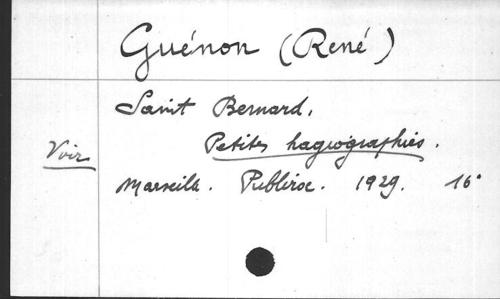 Guénon (René)
Saint Bernard.
Voir Petites hagiographies.
Marseille. Publiroc. 1929. 16°